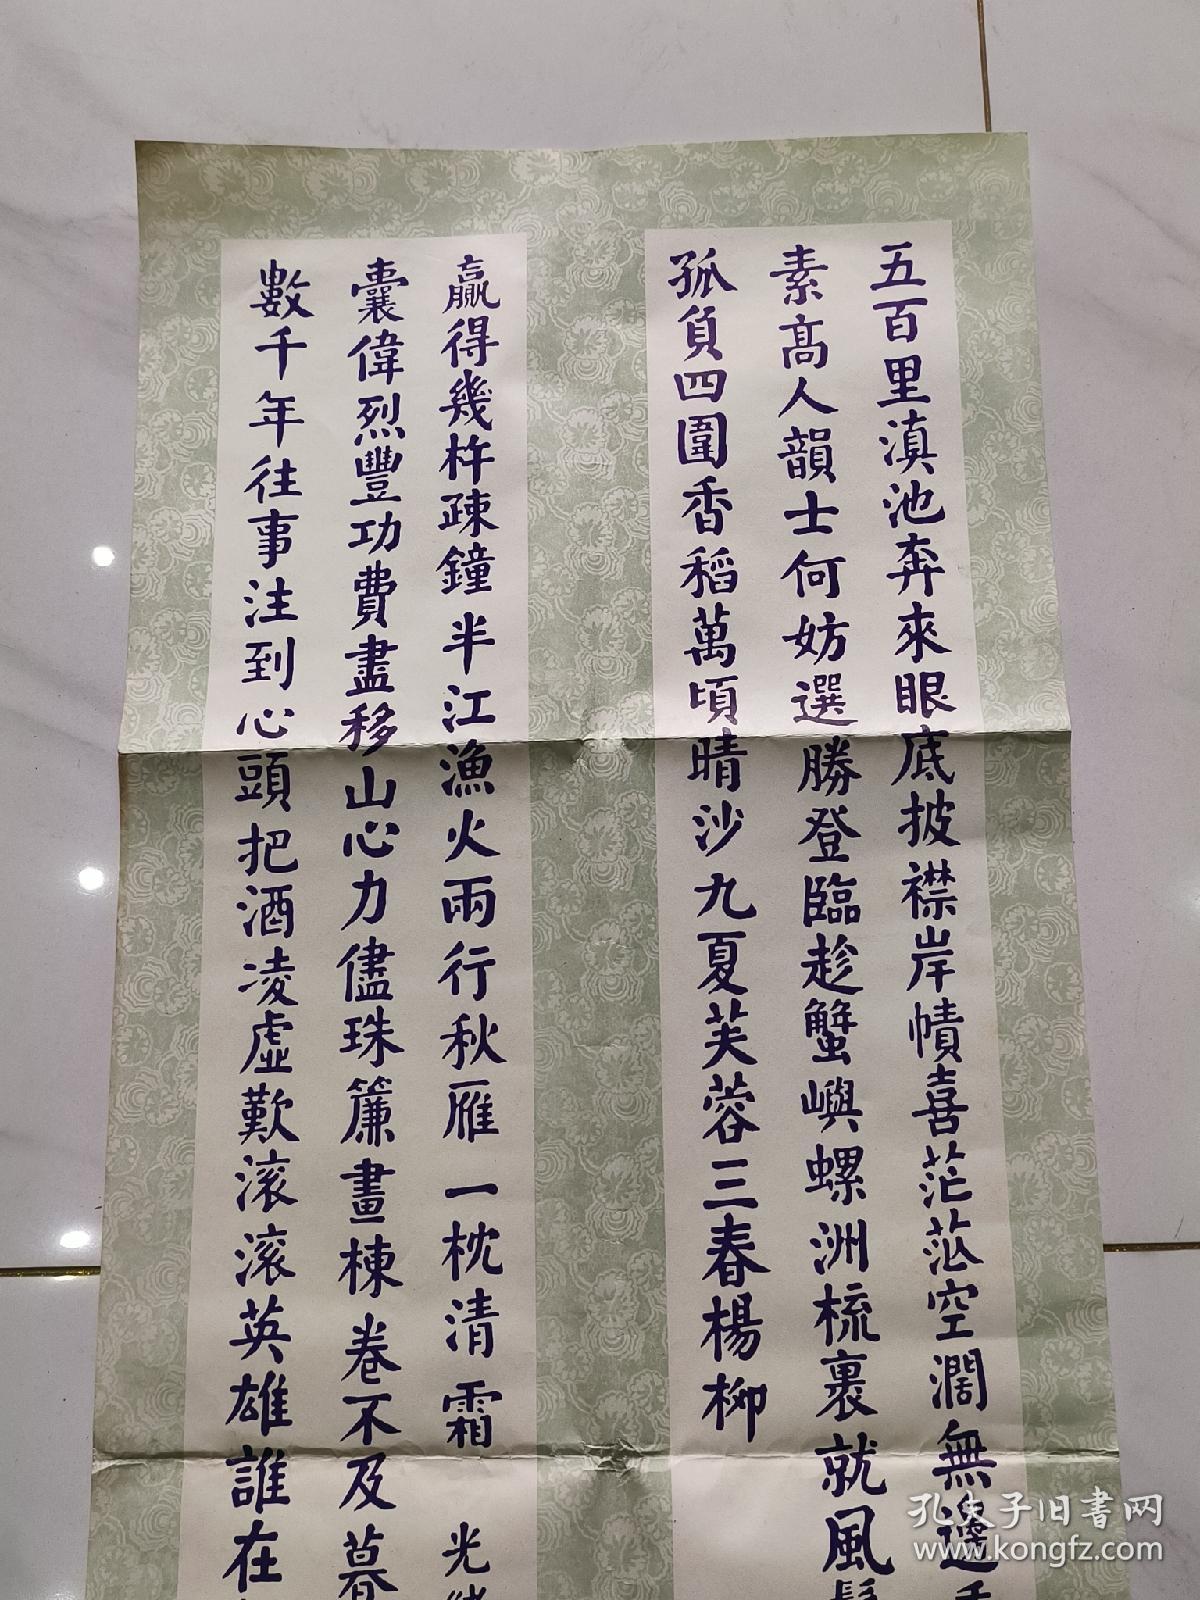 五百里滇池奔來眼底披襟岸幘喜茫茫空濶無邊
素高人韻士何妨選勝登臨趁蟹嶼螺洲梳裹就風
孤負四圍香稻萬頃晴沙九夏芙蓉三春楊柳
數千年往事注到心頭把酒凌虛歎滚滚英雄誰在
囊偉烈豐功費盡移山心力儘珠簾畫棟卷不及暮
贏得幾杵疎鐘半江漁火兩行秋雁一枕清霜 光
孔夫子旧書网
www.kongfz.com